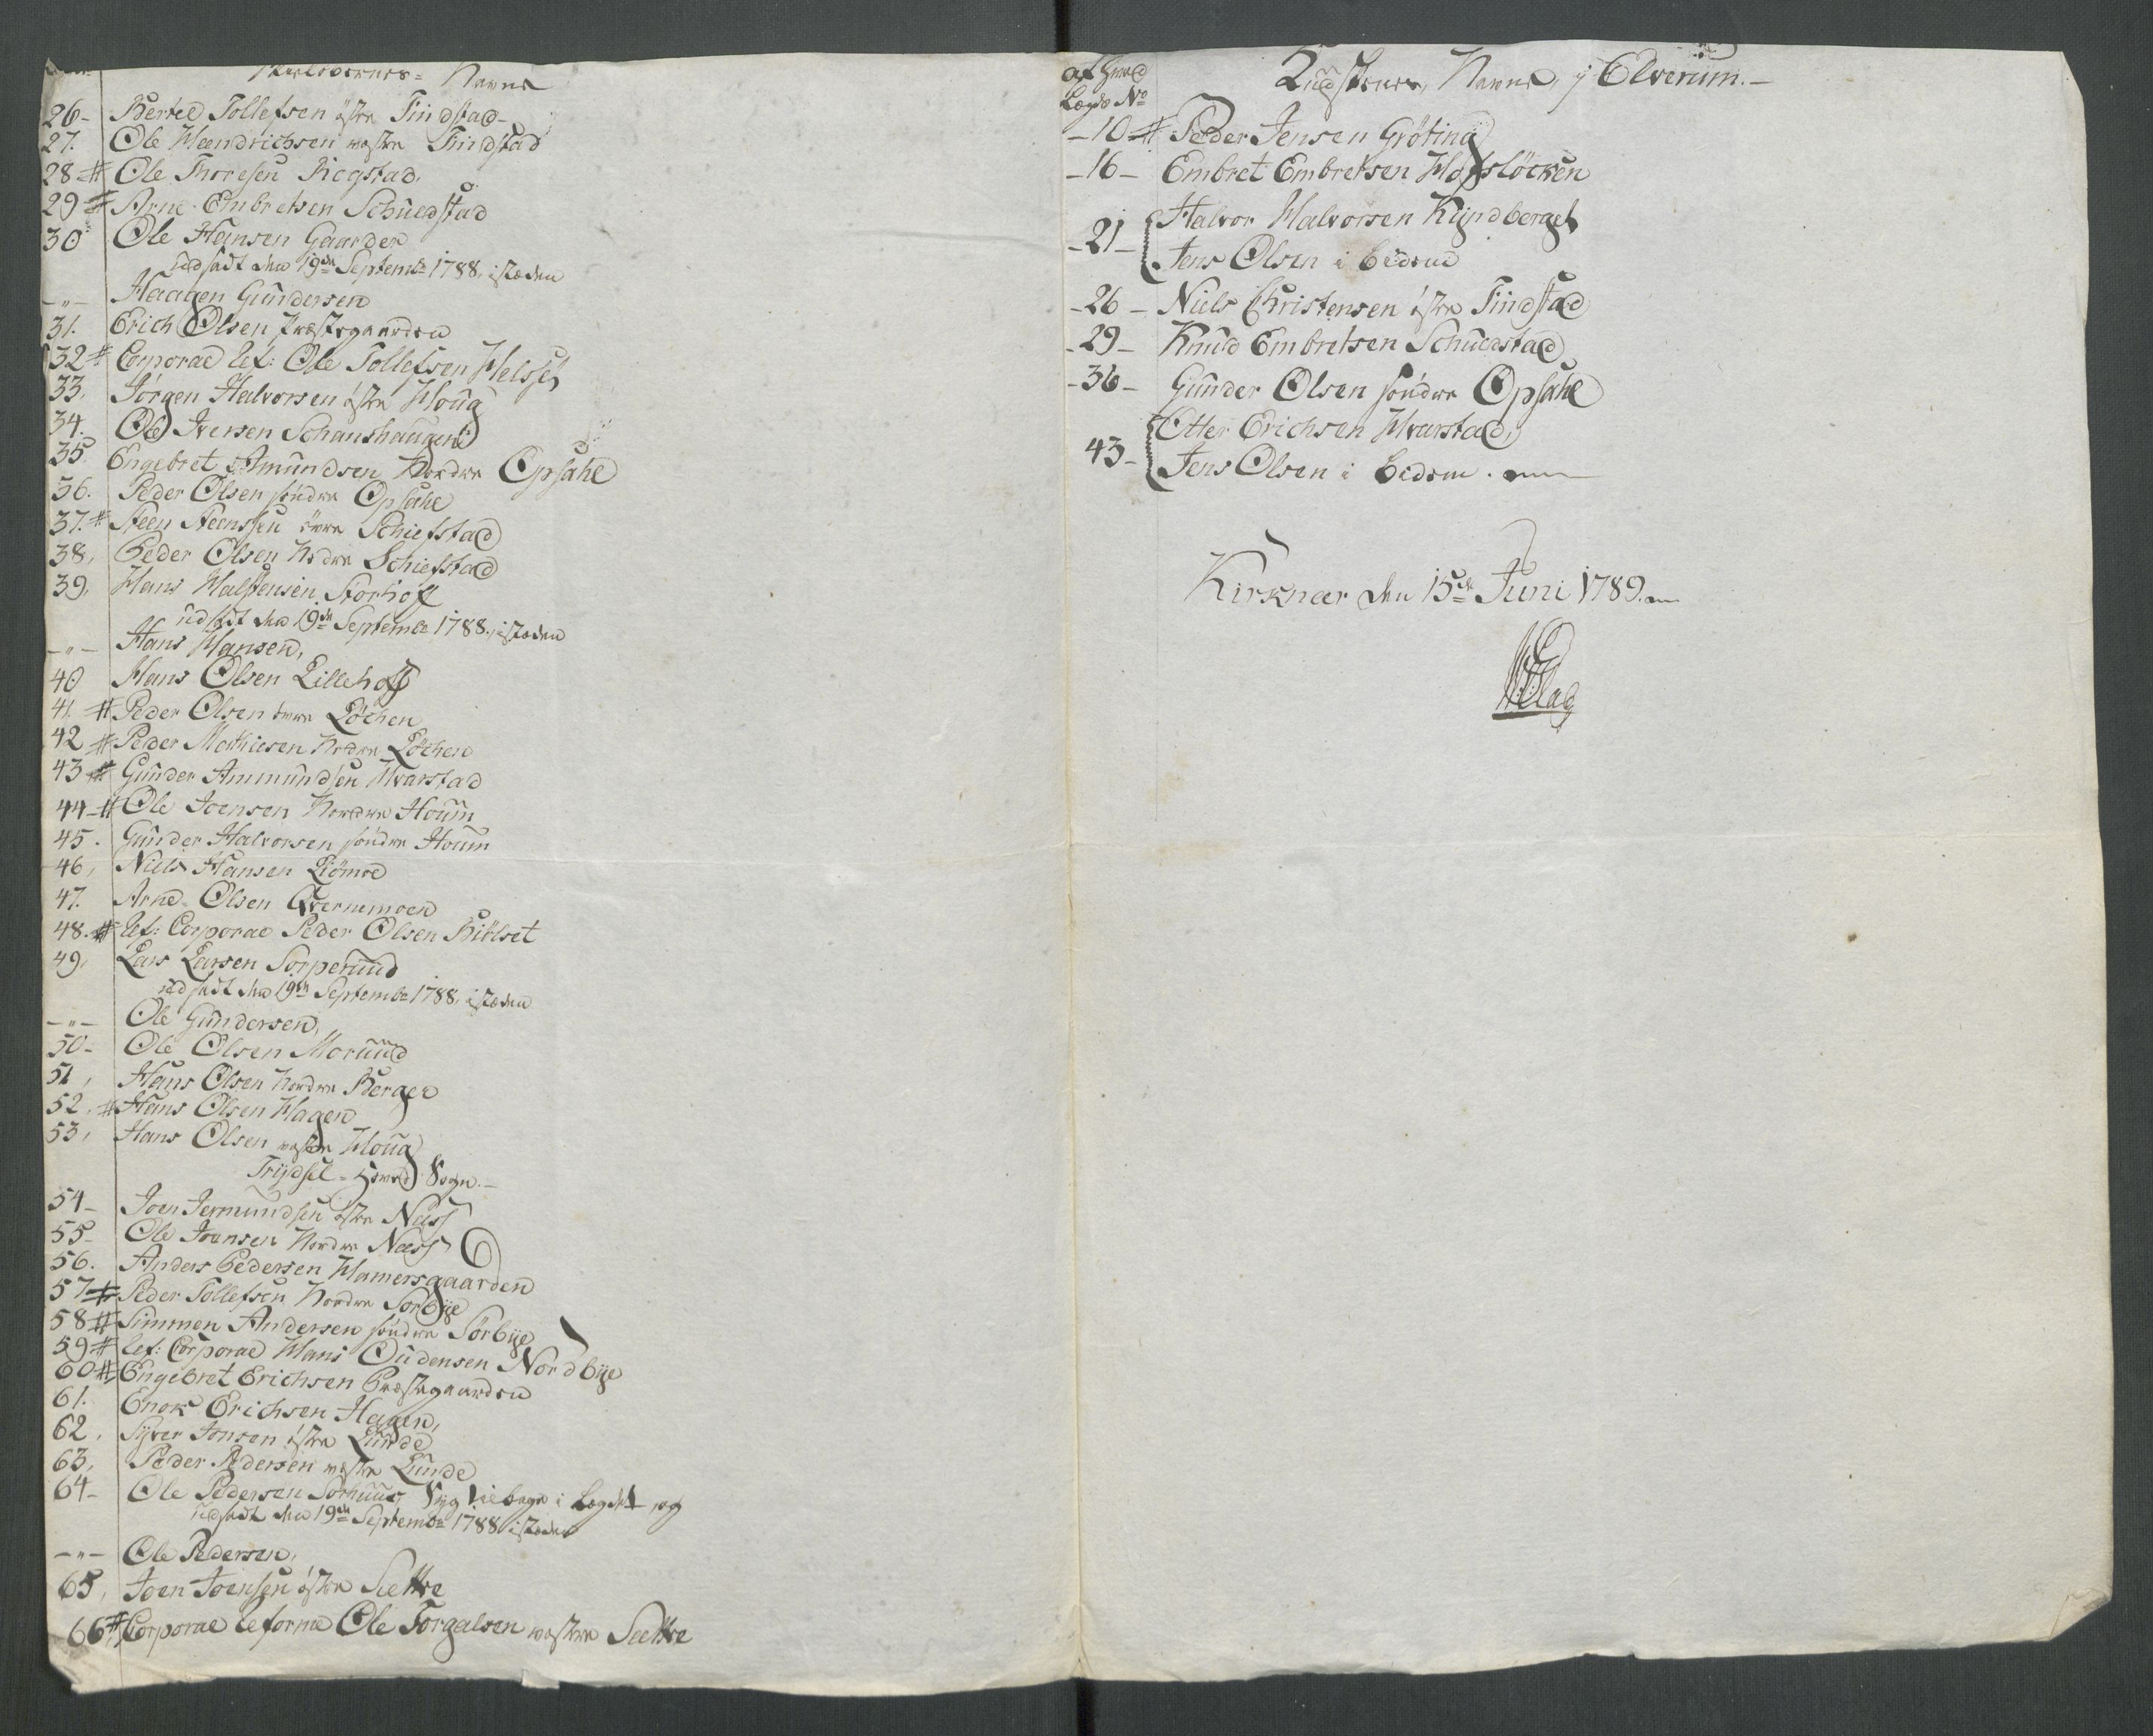 Navne
26- Bertel Tollefsen östre Findstad
27. Ole Heendrichsen westre Findstad
28 # Ole Thoresen Rogstad
29 # Arne Embretsen Schuldstad
30 Ole Hansen Gaarder
udsadt den 19de Septembr 1788, isteden
-"- Haagen Gundersen
31. Erich Olsen Præstegaarden
32 # Corporal Ref: Ole Tollefsen Helsset
33. Jörgen Halvorsen östre Houg
34. Ole Iversen Schanshaugen
35 Engebret Amundsen Nordre Opsahl
36. Peder Olsen söndre Opsahl
37. # Steen Steenssen övre Schiefstad
38, Peder Olsen Nedre Schiefstad
39, Hans Halstensen Storhoff
udsadt den 19de Septembr 1788, isteden
-"- Hans Hansen,
40 Hans Olsen Lillehoff
41. # Peder Olsen övre Löchen
42 # Peder Mathiesen Nedre Löchen
43 # Gunder Ammundsen Hvarstad
44-# Ole Joensen Nordre Houm
45. Gunder Halvorsen söndre Houm
46, Niels Hansen Liömoe
47. Arne Olsen Qvernemoen
48. # Ref: Corporal Peder Olsen Biölset
49, Lars Larsen Sorperuud
udsadt den 19de Septembr 1788, isteden
-"- Ole Gundersen,
50- Ole Olsen Moruud
51, Hans Olsen Nordre Berger
52, # Hans Olsen Hagen
53, Hans Olsen westre Houg
Trydsel- Hoved Sogn.-
54- Joen Jermundsen östre Næss
55- Ole Joensen Nordre Næss
56. Anders Pedersen Hamersgaarden
57 # Peder Tollefsen Nordre Sorbye
58 # Simmen Andersen söndre Sörbye
59 # Ref: Corporal Hans Oudensen Nordbye
60 # Engebret Erichsen Præstegaarden
61. Enok Erichsen Hagen,
62, Syver Jonsen östre Lunde
63, Peder Pedersen westre Lunde
64- Ole Pedersen Sorhuus, Syg tilbage i Legdet og
udsadt den 19de Septembr 1788 isteden
-"- Ole Pedersen,
65, Joen Joensen östre Sættre
66 # Corporal Reforme Ole Torgalsen westre Sættre
Legds No Navne i Elverum.-
-10-# Peder Jensen Gröting
-16- Embret Embretsen Hofslöcken
-21- Halvor Halvorsen Kyndberget
Jens Olsen i
-26- Niels Christensen östre Findstad
-29- Knud Embretsen Schuldstad
-36- Gunder Olsen söndre Opsahl
43- Otter Erichsen Hvarstad,
Jens Olsen i
Kirknær den 15de Juni 1789.